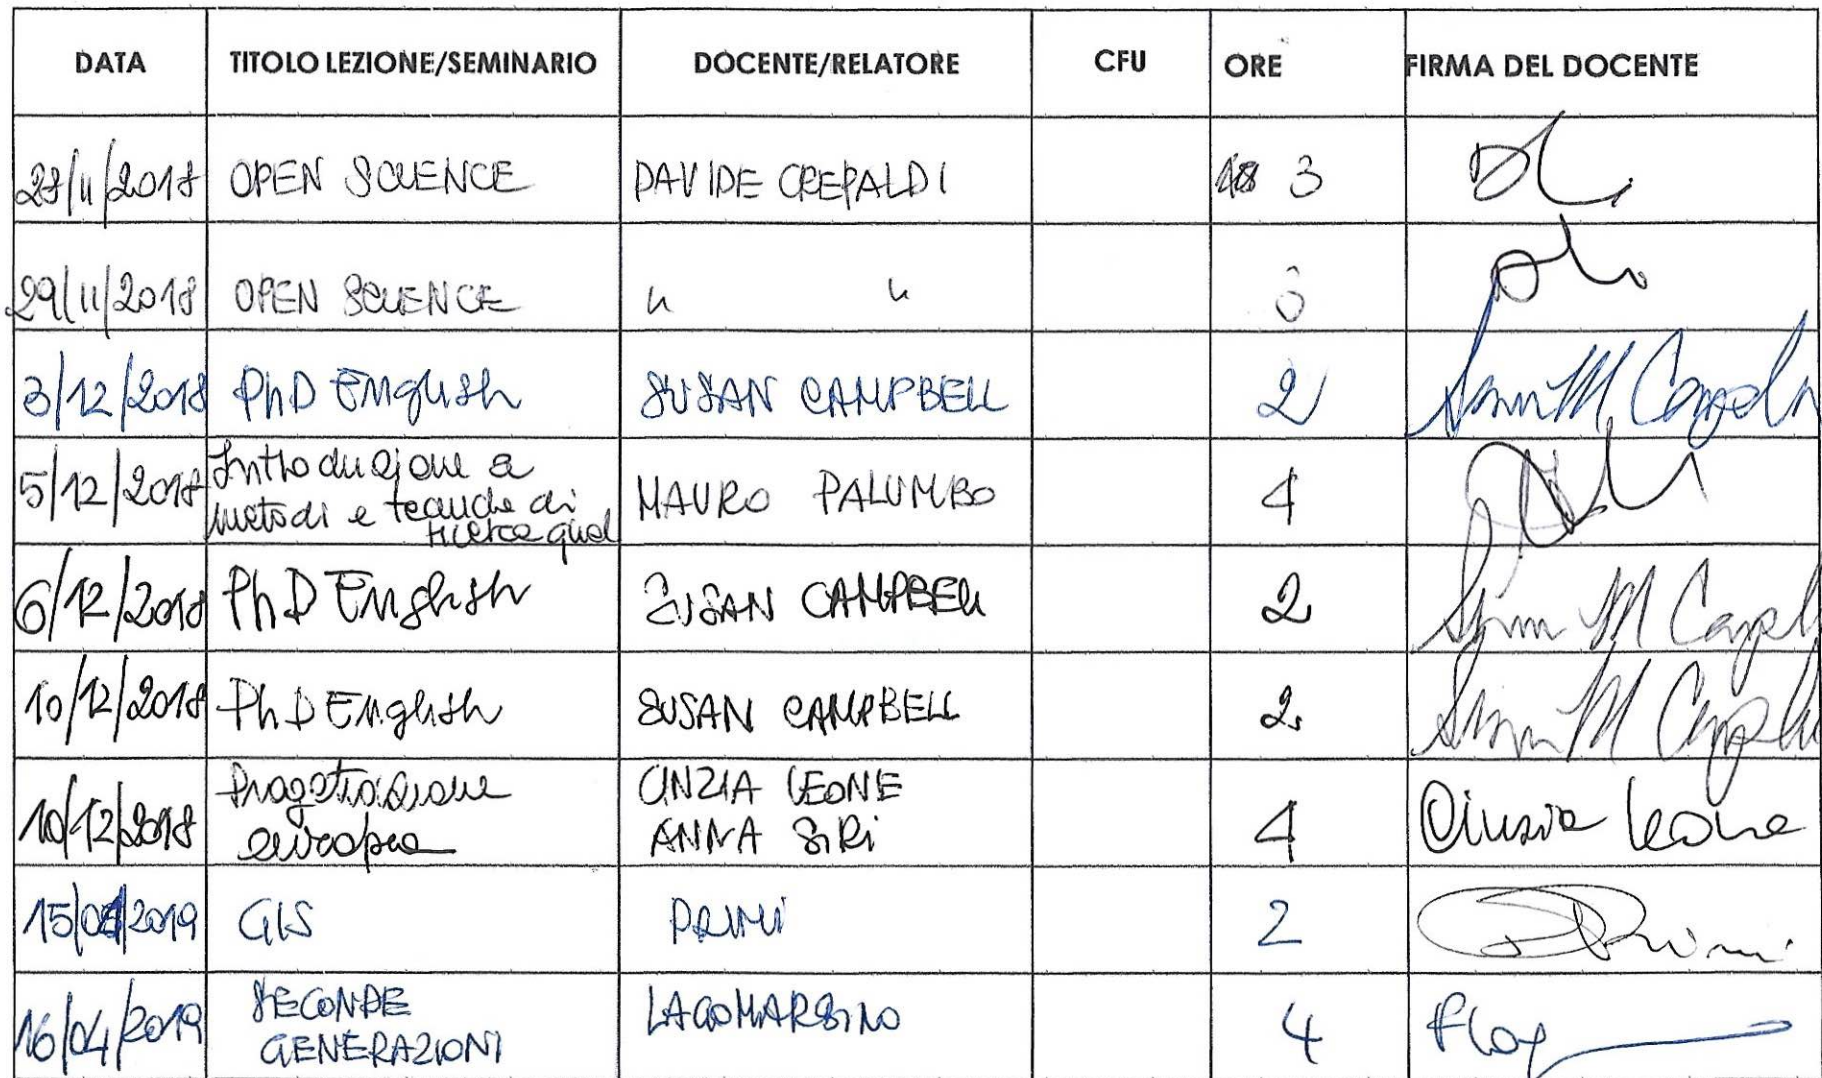 DATA TITOLO LEZIONE/SEMINARIO DOCENTE/RELATORE CFU ORE FIRMA DEL DOCENTE
28/11/2018 OPEN SCIENCE DAVIDE CREPALDI 3
29/11/2018 OPEN SCIENCE " "
3/12/2018 PhD English SUSAN CAMPBELL 2
5/12/2018 Introduzione a metodi e tecniche di ricerca qual MAURO PALUMBO 4
6/12/2018 PhD English SUSAN CAMPBELL 2
10/12/2018 PhD English SUSAN CAMPBELL 2
10/12/2018 Progettazione europea CINZIA LEONE ANNA SIRI 4 Cinzia Leone
15/01/2019 GIS PRIMI 2
16/04/2019 SECONDE GENERAZIONI LAGOMARSINO 4